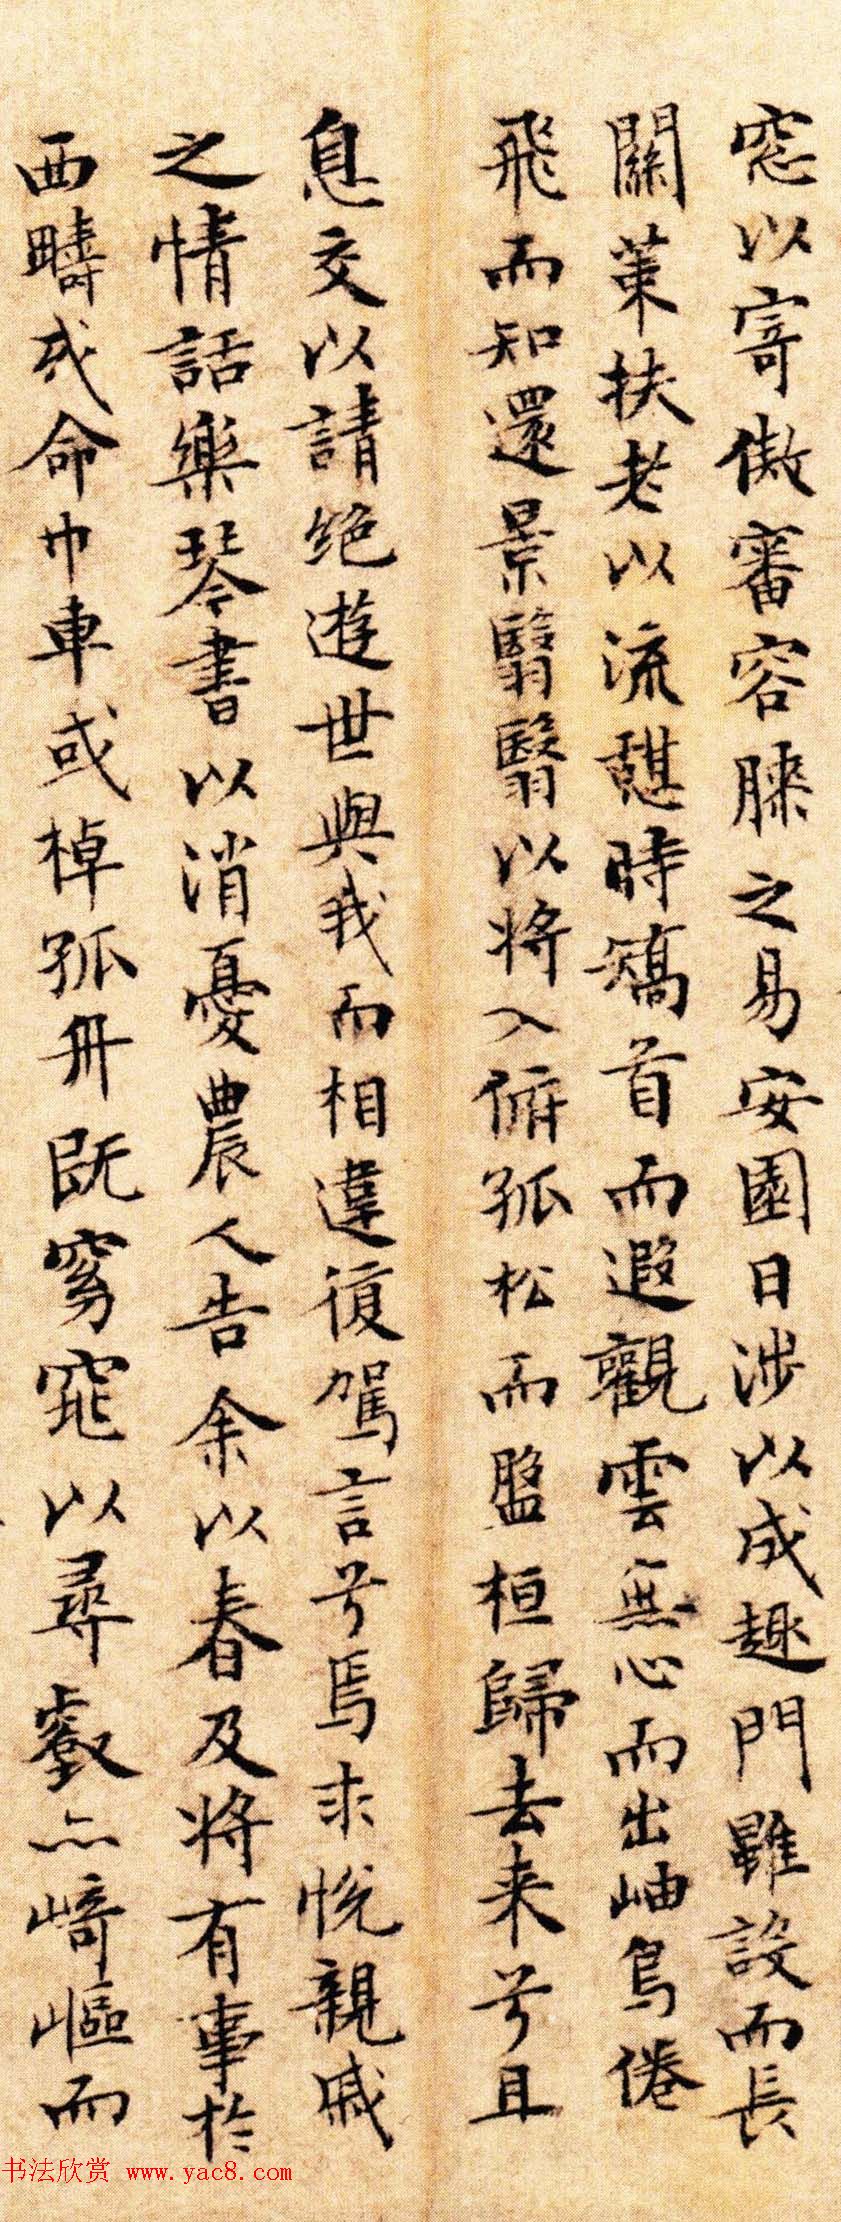 窓以寄傲審容膝之易安園日涉以成趣門雖設而長
關策扶老以流憩時矯首而遐觀雲無心而出岫鳥倦
飛而知還景翳翳以将入俯孤松而盤桓歸去来兮且
息交以請絶遊世與我而相違復駕言兮焉求悦親戚
之情話樂琴書以消憂農人告余以春及将有事於
西疇或命巾車或棹孤舟既窈窕以尋壑亦崎嶇而
书法欣赏 www.yac8.com